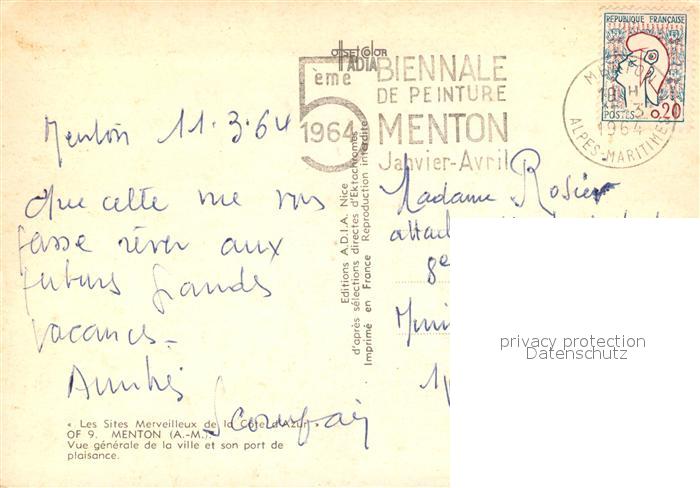 offsetcolor
ADIA
5ème
1964
BIENNALE
DE PEINTURE
MENTON
Janvier-Avril
REPUBLIQUE FRANÇAISE
POSTES
0,20
MENTON
18 H
1964
ALPES-MARITIMES
Menton 11.3.64
Que cette vue vous
fasse rêver aux
futures grandes
vacances.
Amitiés
Madame Rosier
Editions A.D.I.A. Nice
d'après sélections directes d'Ektachromes
Imprimé en France Reproduction interdite
« Les Sites Merveilleux de la Côte d'Azur »
OF 9. MENTON (A.-M.).
Vue générale de la ville et son port de
plaisance.
privacy protection
Datenschutz